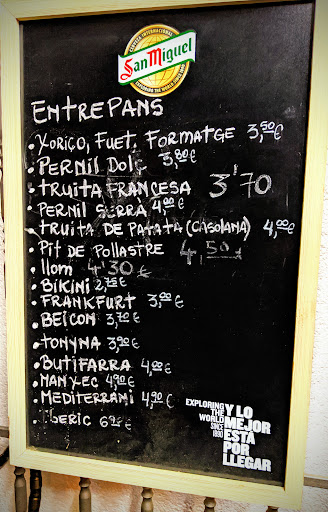 CERVEZA INTERNACIONAL
San Miguel
EXPLORING THE WORLD SINCE 1890
ENTREPANS
• XORIÇO, FUET, FORMATGE 3,50€
• PERNIL DOLÇ 3,80€
• TRUITA FRANCESA 3'70
• PERNIL SERRA 4,00€
• TRUITA DE PATATA (CASOLANA) 4,00€
• PIT DE POLLASTRE 4,50€
• llom 4'30€
• BIKINI 2,75€
• FRANKFURT 3,00€
• BEICON 3,70€
• TONYNA 3,90€
• BUTIFARRA 4,00€
• MANXEC 4,90€
• MEDITERRANI 4,90€
• IBERIC 6,25€
EXPLORING THE WORLD SINCE 1890
Y LO MEJOR ESTÁ POR LLEGAR